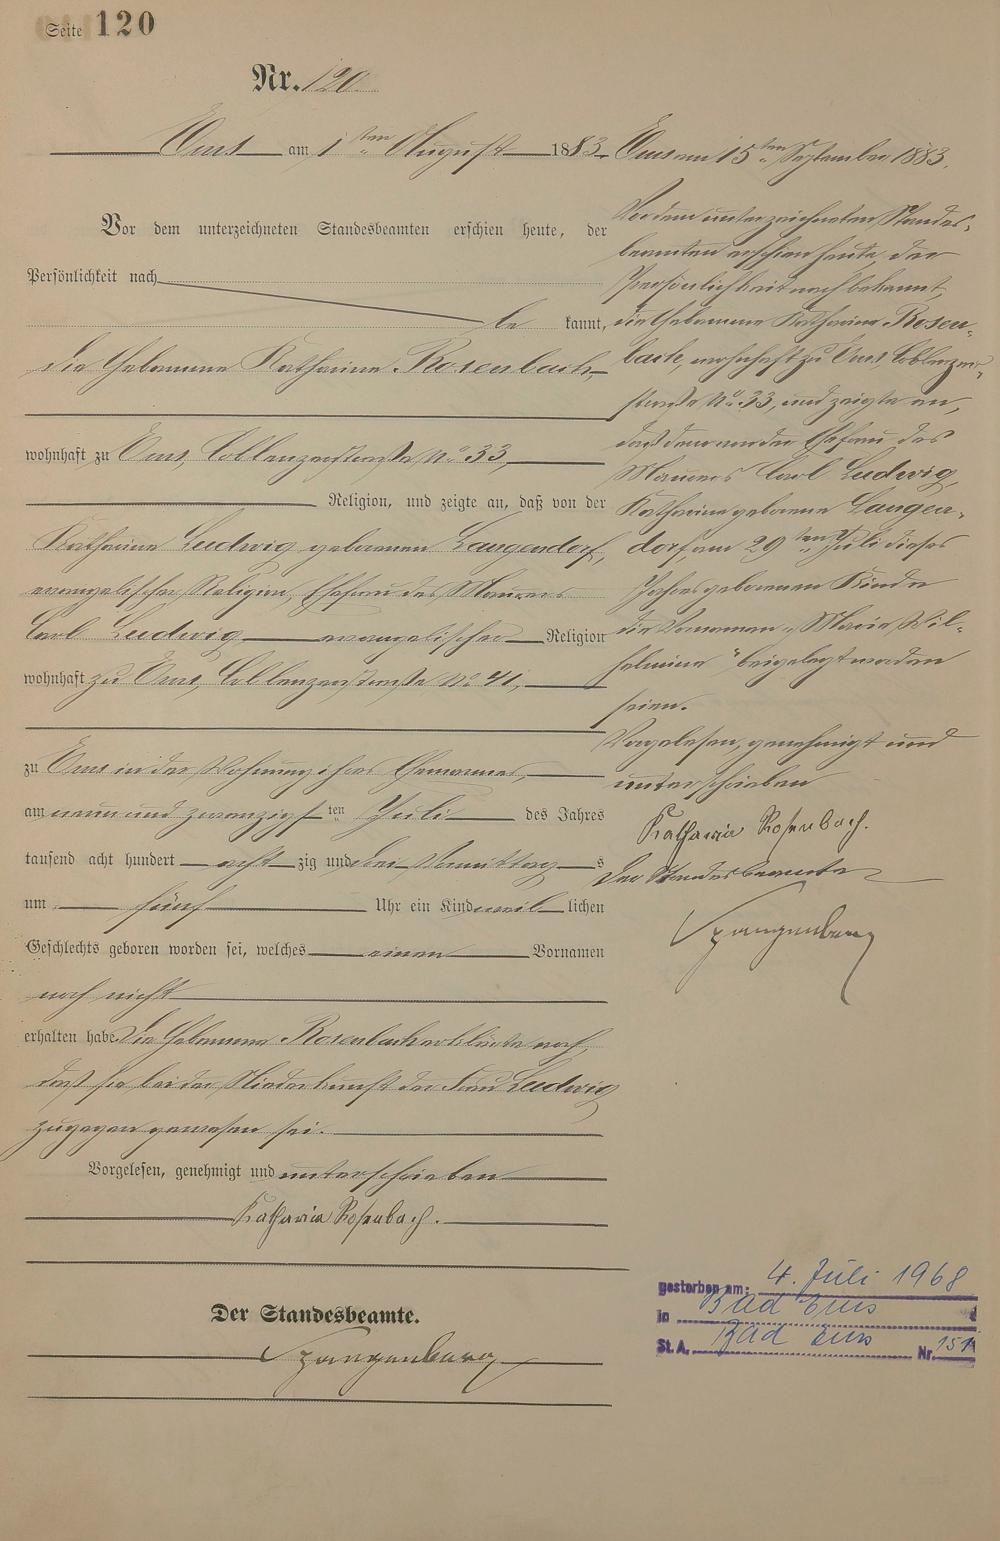 Seite 120
Nr. 120.
Ems am 1ten August 1883.
Vor dem unterzeichneten Standesbeamten erschien heute, der
Persönlichkeit nach
bekannt,
die Hebamme Katharine Rosenbach,
wohnhaft zu Ems, Coblenzerstraße No 33
Religion, und zeigte an, daß von der
Katharine Ludwig geborenen Langendorf,
evangelischer Religion, Ehefrau des Maurers
Carl Ludwig evangelischer Religion
wohnhaft zu Ems, Coblenzerstraße No 41,
zu Ems in der Wohnung ihres Ehemannes,
am neun und zwanzigsten Juli des Jahres
tausend acht hundert achtzig und drei Vormittags
um fünf Uhr ein Kind weiblichen
Geschlechts geboren worden sei, welches einen Vornamen
noch nicht
erhalten habe. Die Hebamme Rosenbach erklärte noch,
daß sie bei der Niederkunft der Frau Ludwig
zugegen gewesen sei.
Vorgelesen, genehmigt und unterschrieben
Katharina Rosenbach.
Der Standesbeamte.
Spangenberg
Ems am 15ten September 1883.
Vor dem unterzeichneten Standes-
beamten erschien heute, der
Persönlichkeit nach bekannt,
die Hebamme Katharine Rosen-
bach, wohnhaft zu Ems, Coblenzer-
straße No 33, und zeigte an,
daß dem von der Ehefrau des
Maurers Carl Ludwig,
Katharine geborene Langen-
dorf, am 29ten Juli dieses
Jahres geborenen Kinde
die Vornamen „Marie Wil-
helmine" beigelegt worden
seien.
Vorgelesen, genehmigt und
unterschrieben
Katharina Rosenbach.
Der Standesbeamte
Spangenberg
gestorben am: 4. Juli 1968
in Bad Ems
St. A. Bad Ems Nr. 151